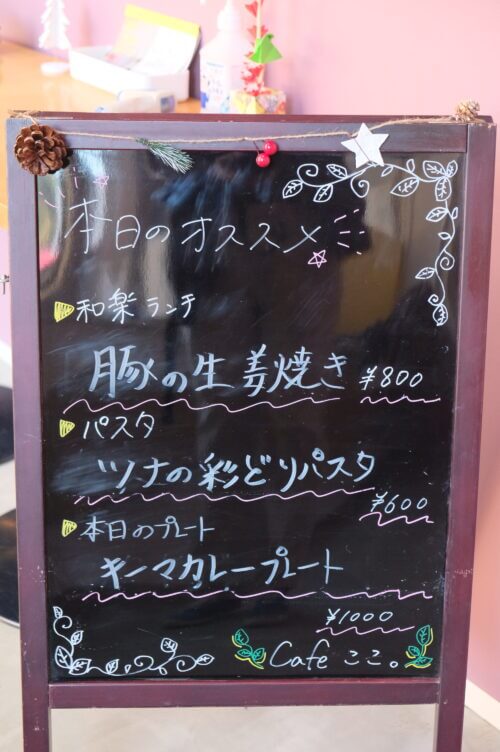 本日のオススメ
和楽ランチ
豚の生姜焼き ¥800
パスタ
ツナの彩どりパスタ
¥600
本日のプレート
キーマカレープレート
¥1000
Cafe ここ。